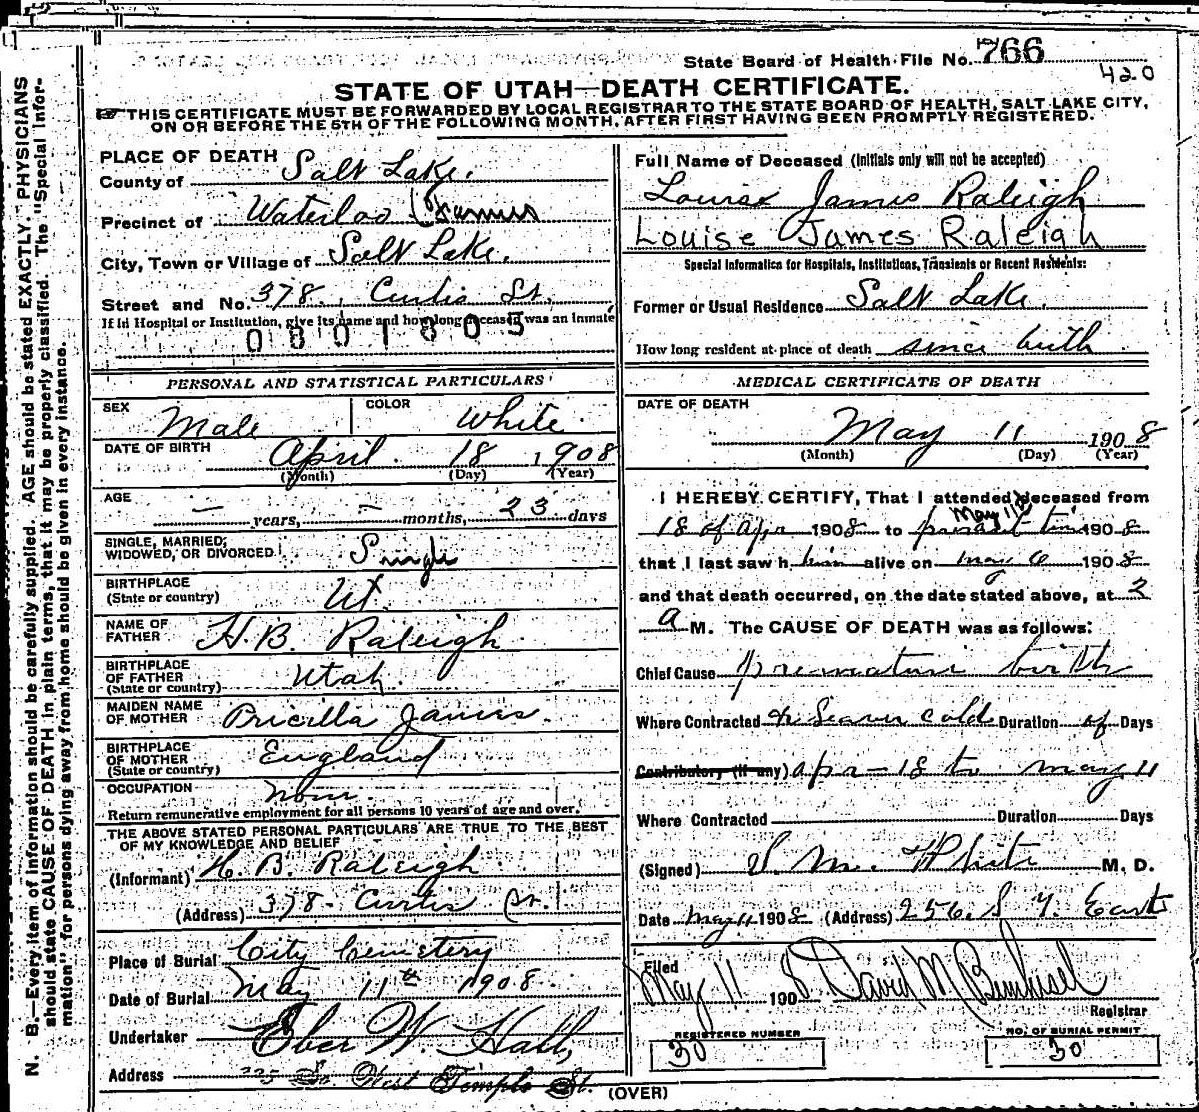 State Board of Health File No. 766
420
STATE OF UTAH—DEATH CERTIFICATE.
THIS CERTIFICATE MUST BE FORWARDED BY LOCAL REGISTRAR TO THE STATE BOARD OF HEALTH, SALT LAKE CITY,
ON OR BEFORE THE 5TH OF THE FOLLOWING MONTH, AFTER FIRST HAVING BEEN PROMPTLY REGISTERED.
N. B.—Every item of information should be carefully supplied. AGE should be stated EXACTLY. PHYSICIANS
should state CAUSE OF DEATH in plain terms, that it may be properly classified. The "Special Infor-
mation" for persons dying away from home should be given in every instance.
PLACE OF DEATH
County of Salt Lake.
Precinct of Waterloo (Farmers
City, Town or Village of Salt Lake.
Street and No. 378. Curtis St.
If in Hospital or Institution, give its name and how long deceased was an inmate
0801805
PERSONAL AND STATISTICAL PARTICULARS
SEX Male COLOR White
DATE OF BIRTH April 18 1908
(Month) (Day) (Year)
AGE
— years, — months, 23 days
SINGLE, MARRIED,
WIDOWED, OR DIVORCED Single
BIRTHPLACE
(State or country) Ut.
NAME OF
FATHER H. B. Raleigh
BIRTHPLACE
OF FATHER
(State or country) Utah.
MAIDEN NAME
OF MOTHER Pricilla James.
BIRTHPLACE
OF MOTHER
(State or country) England
OCCUPATION None
Return remunerative employment for all persons 10 years of age and over.
THE ABOVE STATED PERSONAL PARTICULARS ARE TRUE TO THE BEST
OF MY KNOWLEDGE AND BELIEF
(Informant) H. B. Raleigh
(Address) 378- Curtis St.
Place of Burial City Cemetery
Date of Burial May 11th 1908.
Undertaker Eber W. Hall,
Address 225 So West Temple St.
Full Name of Deceased (Initials only will not be accepted)
Louise James Raleigh
Louise James Raleigh
Special Information for Hospitals, Institutions, Transients or Recent Residents:
Former or Usual Residence Salt Lake.
How long resident at place of death since birth
MEDICAL CERTIFICATE OF DEATH
DATE OF DEATH
May 11 1908
(Month) (Day) (Year)
I HEREBY CERTIFY, That I attended deceased from
May 11
18 of Apr 1908 to present time 1908
that I last saw him alive on May 10 1908
and that death occurred, on the date stated above, at 2
a M. The CAUSE OF DEATH was as follows:
Chief Cause premature birth
Where Contracted & Sever cold Duration of Days
Contributory (if any) Apr - 18 to May 11
Where Contracted Duration Days
(Signed) V. M. White M. D.
Date May 11 1908 (Address) 256. S 4. East
Filed
May 11 1908 David M
Registrar
REGISTERED NUMBER
30
NO. OF BURIAL PERMIT
30
(OVER)